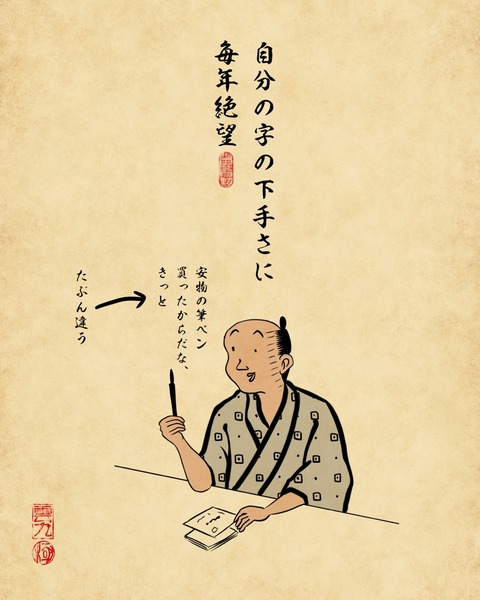 自分の字の下手さに
毎年絶望
安物の筆ペン
買ったからだな、
きっと
たぶん違う